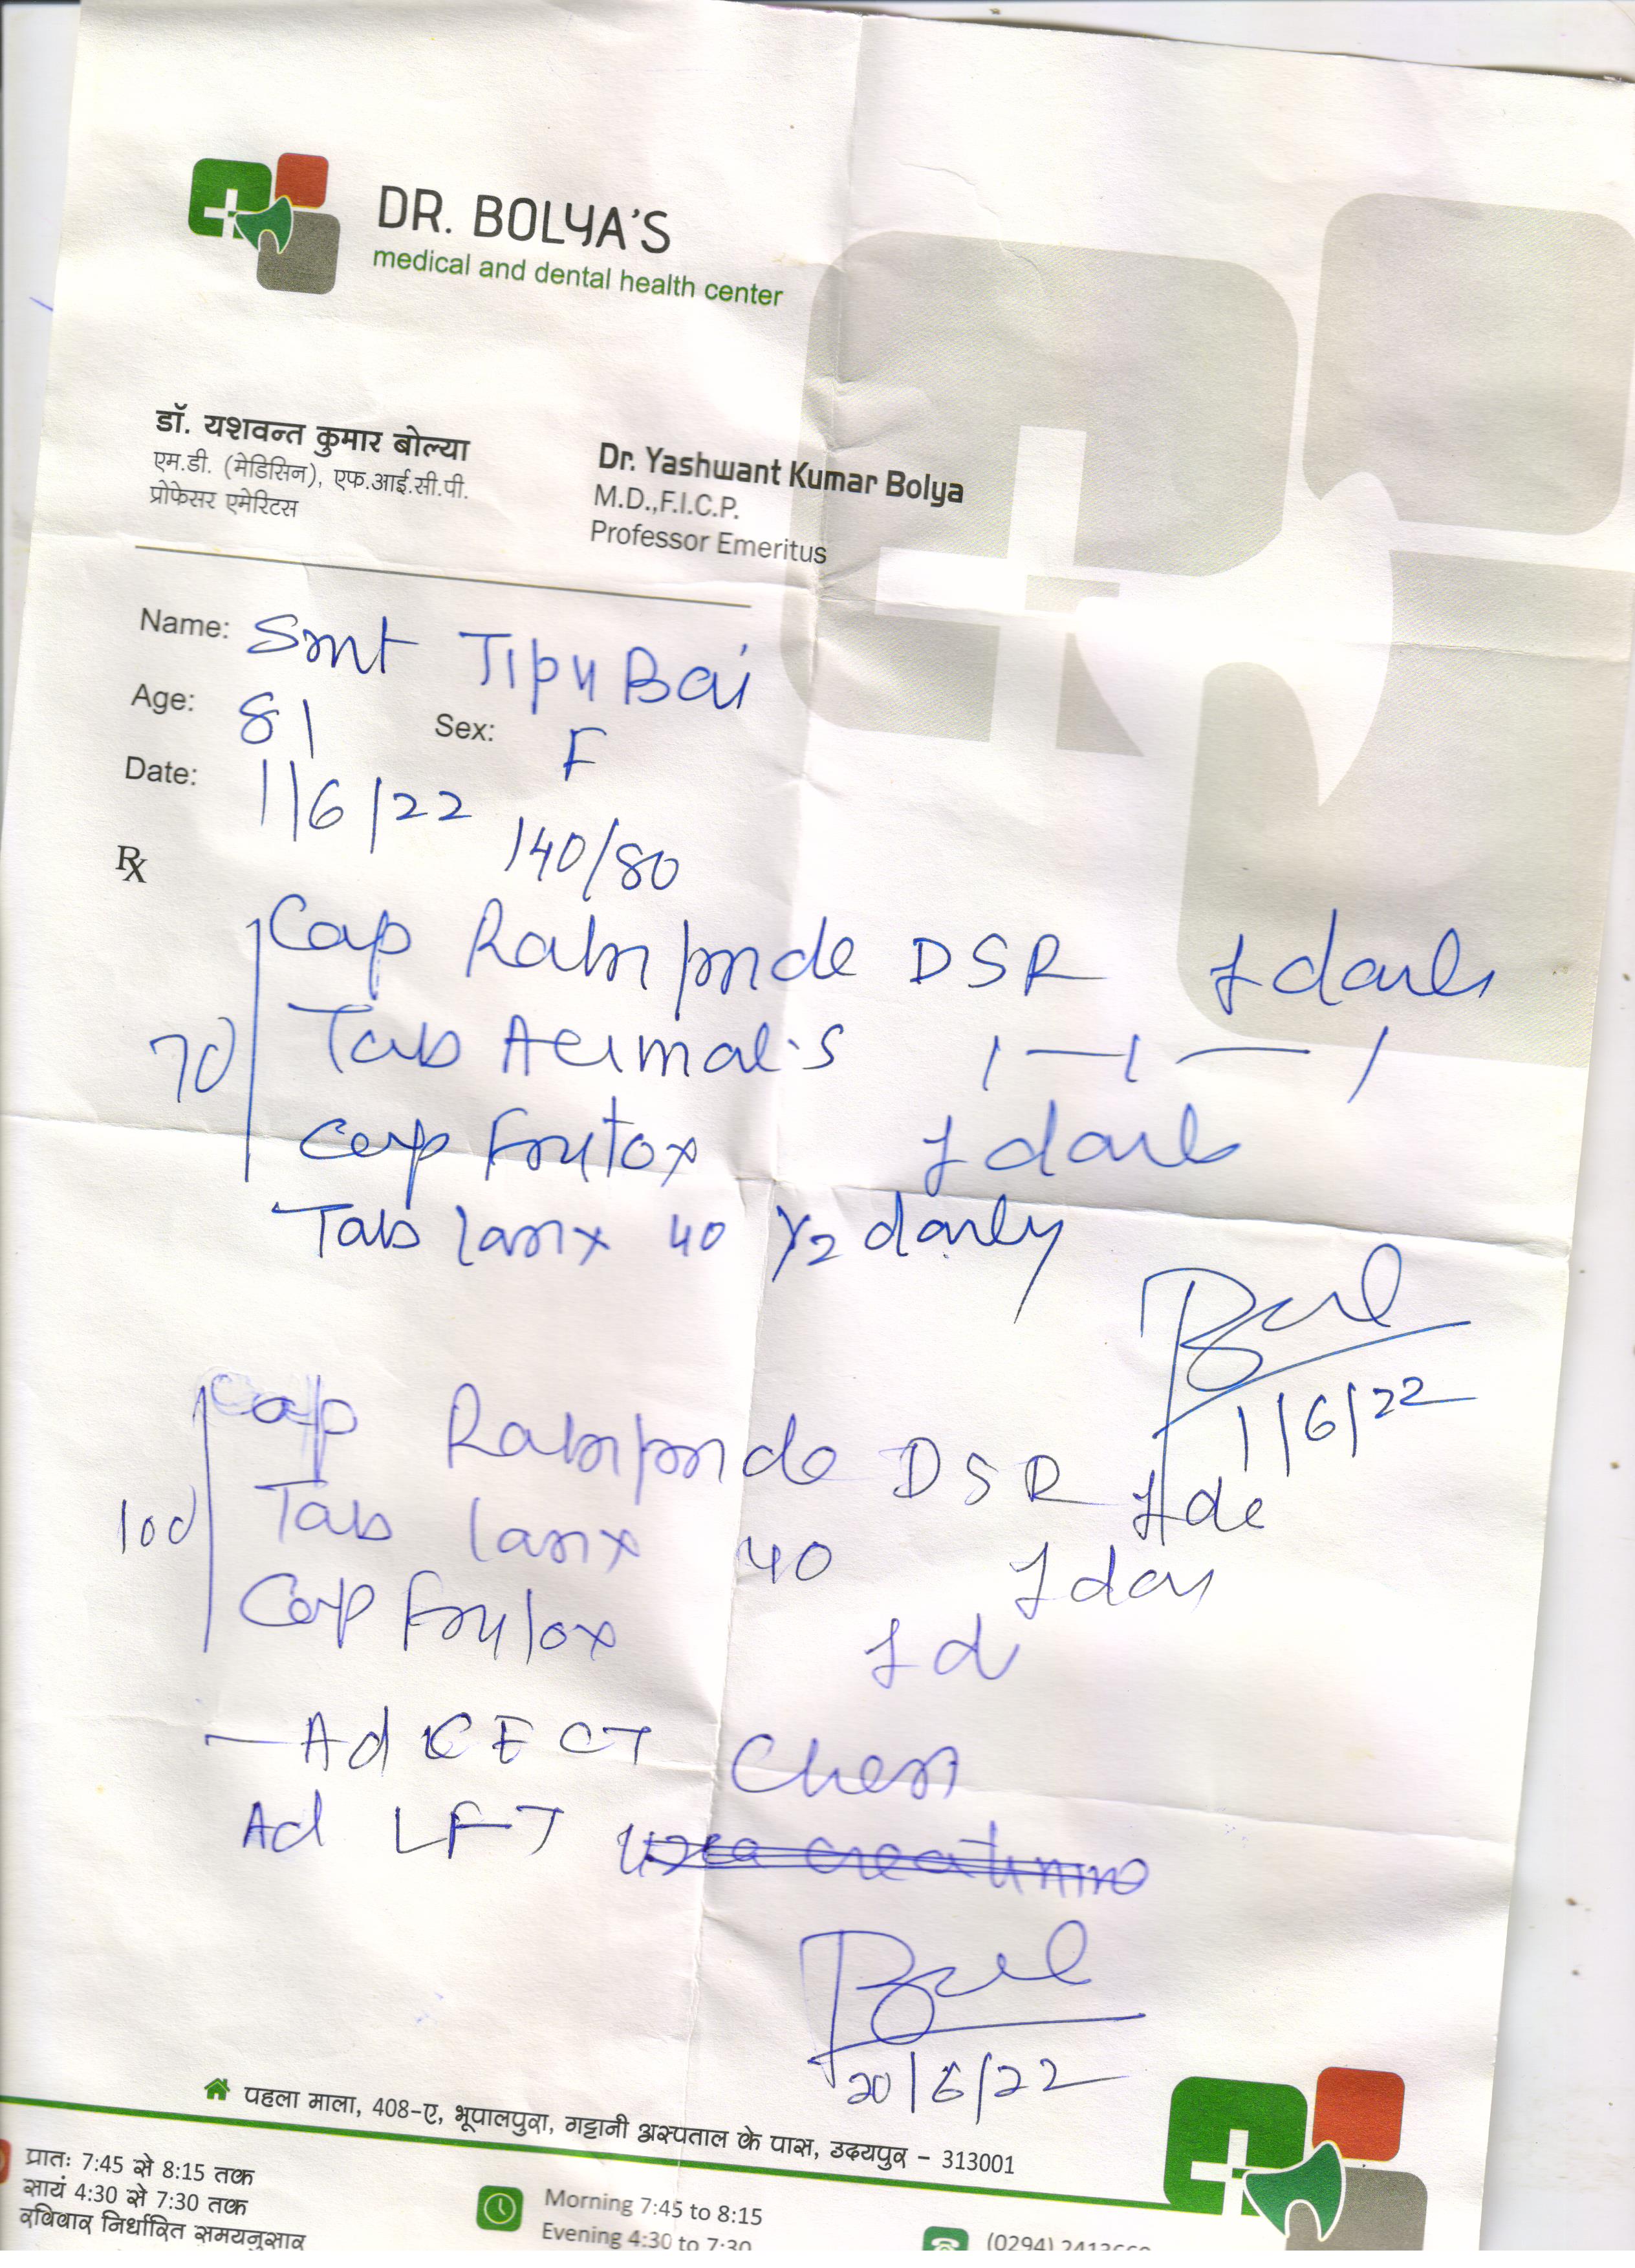 DR. BOLYA'S
medical and dental health center
डॉ. यशवन्त कुमार बोल्या
एम.डी. (मेडिसिन), एफ.आई.सी.पी.
प्रोफेसर एमेरिटस
Dr. Yashwant Kumar Bolya
M.D.,F.I.C.P.
Professor Emeritus
Name: Smt Tipu Bai
Age: 81 Sex: F
Date: 1/6/22 140/80
Rx
Cap DSR 1 daily
7d Tab 1—1—1
Cap 1 daily
Tab Lasix 40 1/2 daily
1/6/22
Cap DSR 1 d
10d Tab Lasix 40 1 day
Cap 1 d
— Ad CECT Chest
Ad LFT urea creatinine
20/6/22
पहला माला, 408-ए, भूपालपुरा, गट्टानी अस्पताल के पास, उदयपुर - 313001
प्रातः 7:45 से 8:15 तक
सायं 4:30 से 7:30 तक
रविवार निर्धारित समयनुसार
Morning 7:45 to 8:15
Evening 4:30 to 7:30
(0294)